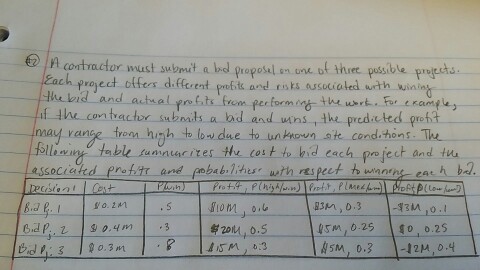 #2 A contractor must submit a bid proposal on one of three possible projects.
Each project offers different profits and risks associated with wining
the bid and actual profits from performing the work. For example,
if the contractor submits a bid and wins, the predicted profit
may range from high to low due to unknown site conditions. The
following table summarizes the cost to bid each project and the
associated profits and probabilities with respect to winning each bid.
Decision: Cost P(win) Profit, P(high/win) Profit, P(med/win) Profit P(low/win)
Bid Pj. 1 $0.2M .5 $10M, 0.6 $3M, 0.3 -$3M, 0.1
Bid Pj. 2 $0.4M .3 $20M, 0.5 $5M, 0.25 $0, 0.25
Bid Pj. 3 $0.3M .8 $15M, 0.3 $5M, 0.3 -$2M, 0.4